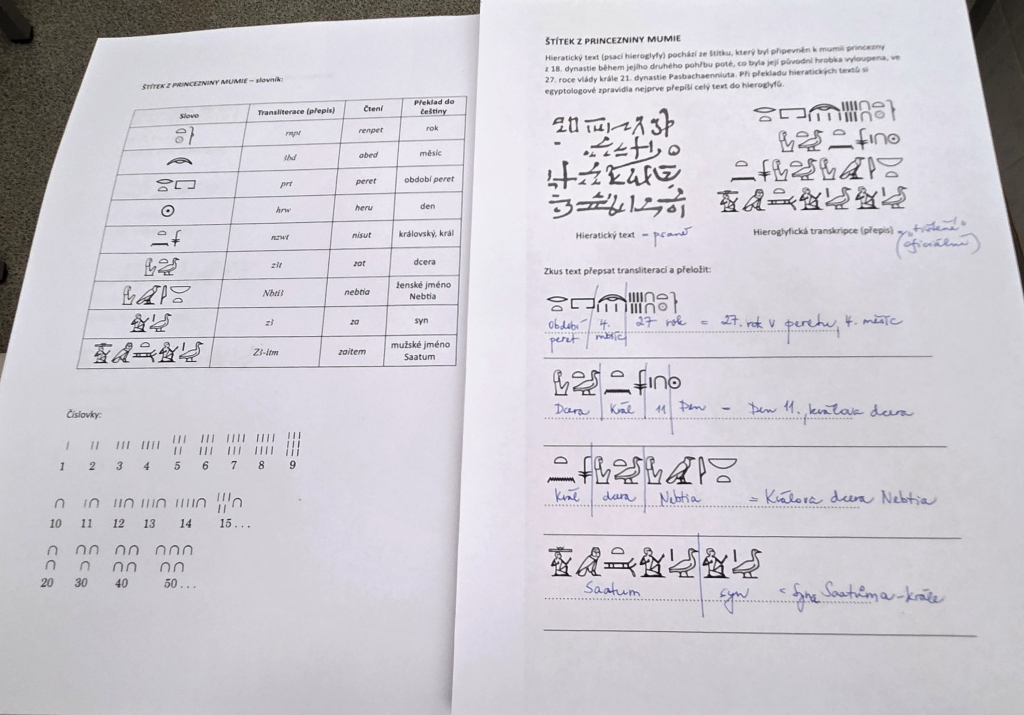 ŠTÍTEK Z PRINCEZNINY MUMIE – slovník:
Slovo Transliterace (přepis) Čtení Překlad do češtiny
rnpt renpet rok
ꜣbd abed měsíc
prt peret období peret
hrw heru den
nzwt nisut královský, král
zꜣt zat dcera
Nbtiꜣ nebtia ženské jméno Nebtia
zꜣ za syn
Zꜣ-itm zaitem mužské jméno Saatum
Číslovky:
1 2 3 4 5 6 7 8 9
10 11 12 13 14 15...
20 30 40 50...
ŠTÍTEK Z PRINCEZNINY MUMIE
Hieratický text (psací hieroglyfy) pochází ze štítku, který byl připevněn k mumii princezny
z 18. dynastie během jejího druhého pohřbu poté, co byla její původní hrobka vyloupena, ve
27. roce vlády krále 21. dynastie Pasbachaenniuta. Při překladu hieratických textů si
egyptologové zpravidla nejprve přepíší celý text do hieroglyfů.
Hieratický text – psané
Hieroglyfická transkripce (přepis) „tištěné“
(oficiální)
Zkus text přepsat transliterací a přeložit:
Období peret 4. měsíc 27 rok = 27. rok v peretu, 4. měsíc
Dcera Král 11 Den – Den 11., králova dcera
Král dcera Nebtia = Králova dcera Nebtia
Saatum syn = syna Saatuma-krále